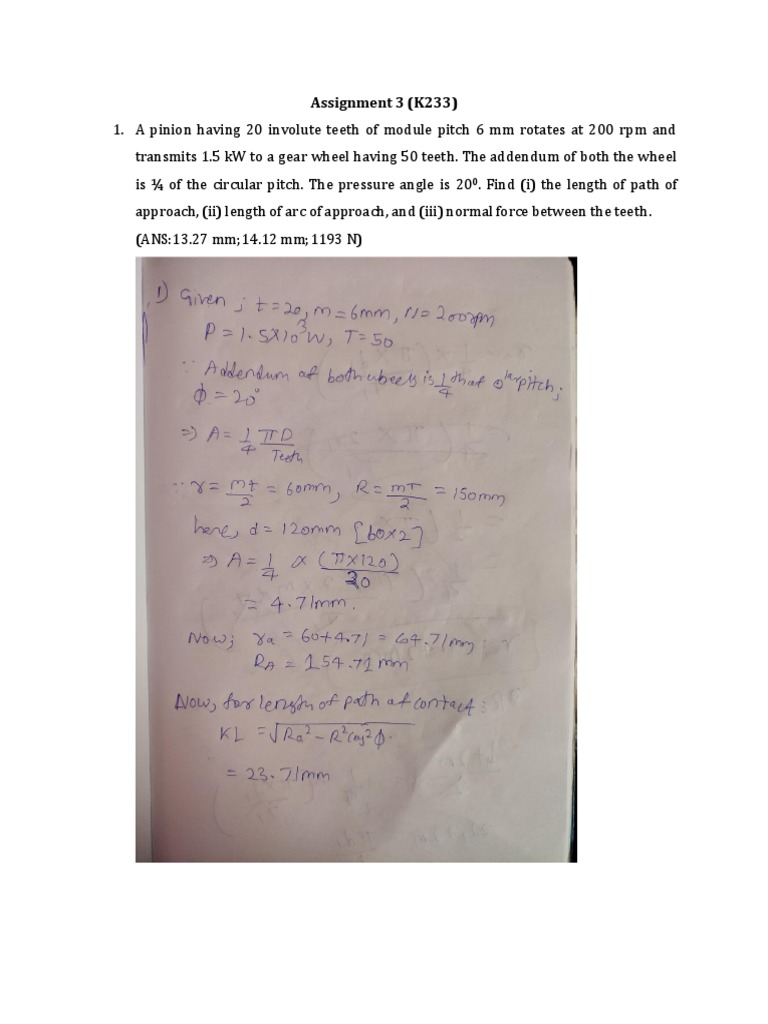 Assignment 3 (K233)
1. A pinion having 20 involute teeth of module pitch 6 mm rotates at 200 rpm and
transmits 1.5 kW to a gear wheel having 50 teeth. The addendum of both the wheel
is ¼ of the circular pitch. The pressure angle is 20⁰. Find (i) the length of path of
approach, (ii) length of arc of approach, and (iii) normal force between the teeth.
(ANS: 13.27 mm; 14.12 mm; 1193 N)
1) Given ; t=20, m=6mm, N=200rpm
P = 1.5X10³W, T=50
∵ Addendum of both wheels is 1/4 that pitch;
ϕ = 20°
⇒ A = 1/4 πD/Teeth
∵ r = mt/2 = 60mm, R = mT/2 = 150mm
here, d = 120mm [60x2]
⇒ A = 1/4 x (πx120)/20
= 4.71mm.
Now; ra = 60+4.71 = 64.71mm
RA = 154.71 mm
Now, for length of path of contact:
KL = √Ra² - R²cos²ϕ
= 23.71mm